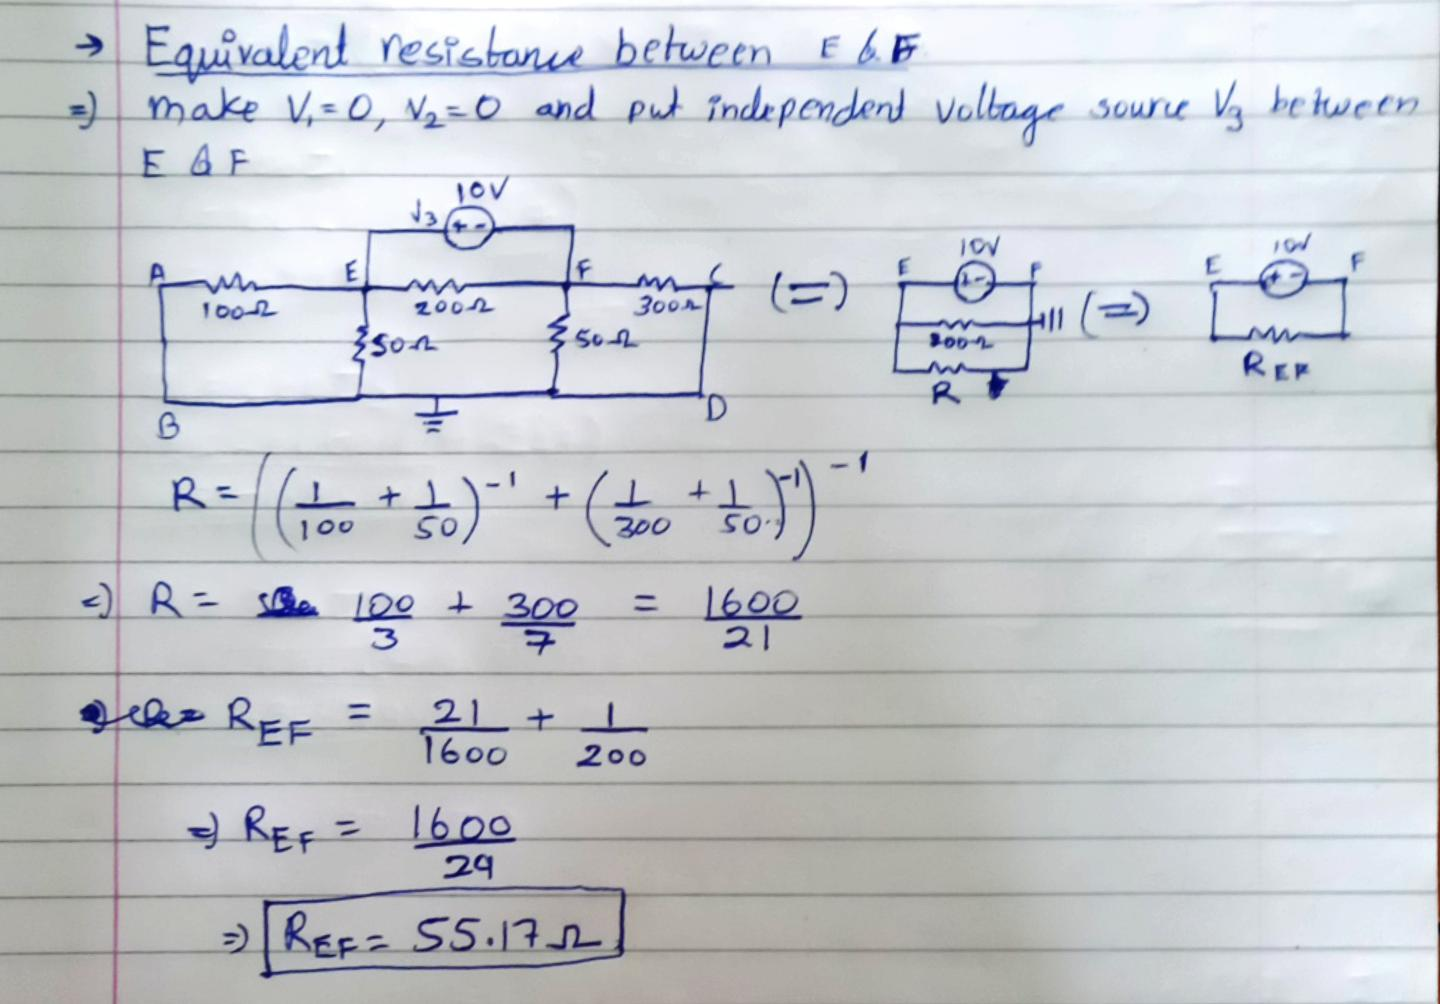 → Equivalent resistance between E & F
=) make V₁=0, V₂=0 and put independent voltage source V₃ between
E & F
10V
V₃ + -
A 100Ω E 200Ω F 300Ω C (=)
50Ω 50Ω
B D
10V
E + - F
200Ω (=)
R
10V
E + - F
R_EF
R = ((1/100 + 1/50)⁻¹ + (1/300 + 1/50)⁻¹)⁻¹
=) R = 100/3 + 300/7 = 1600/21
R_EF = 21/1600 + 1/200
=) R_EF = 1600/29
=) R_EF = 55.17Ω